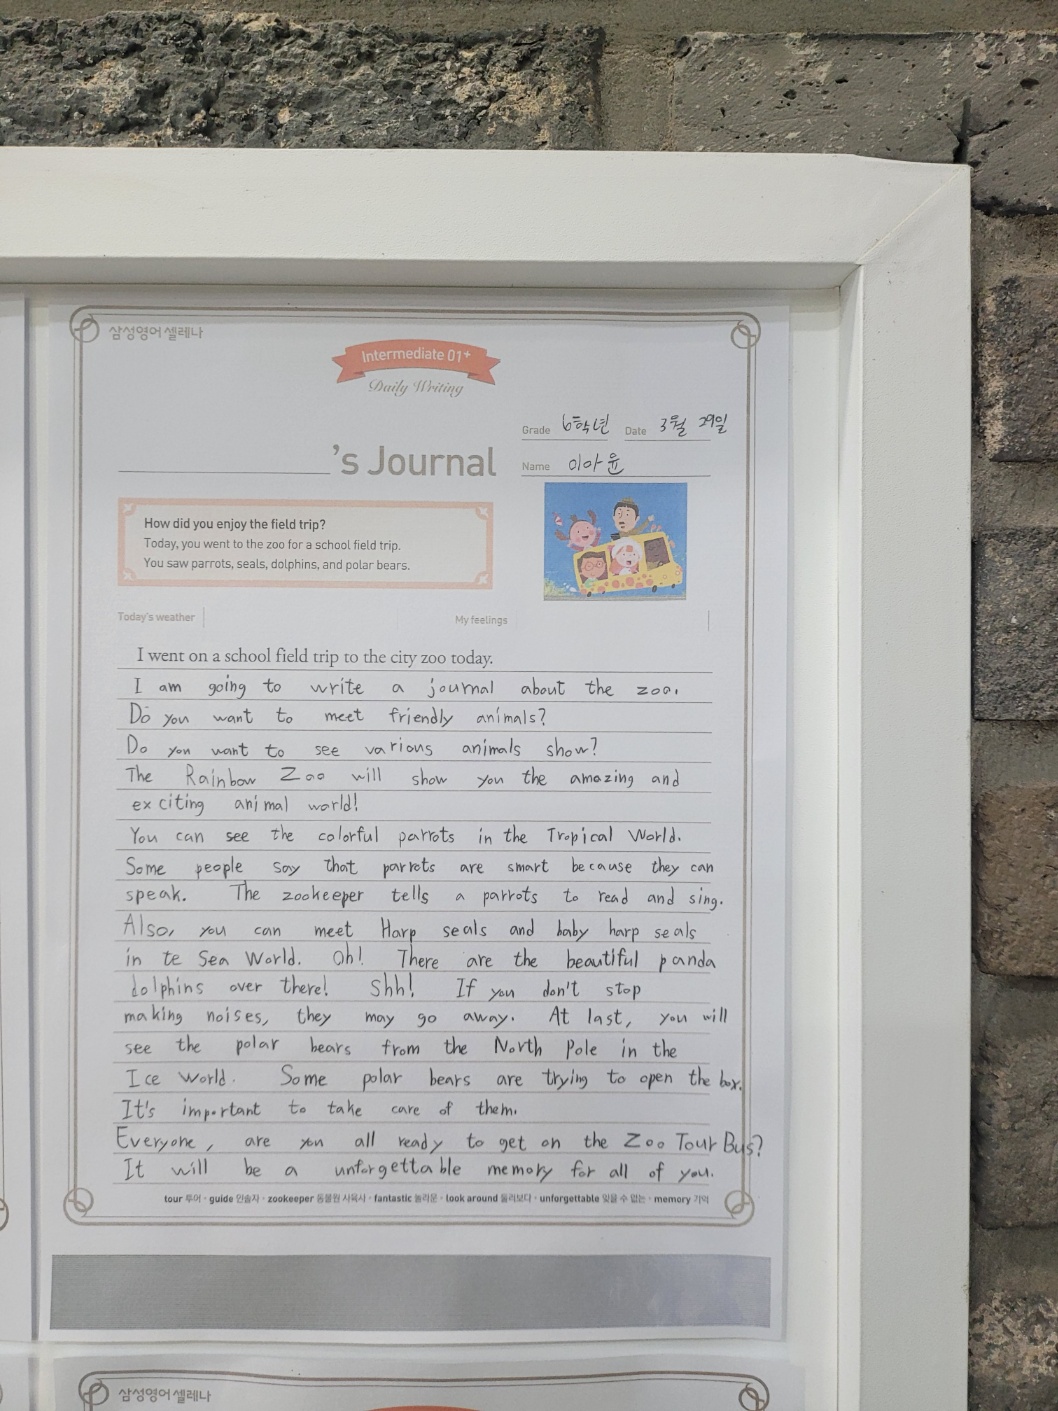 삼성영어 셀레나
Intermediate 01+
Daily Writing
Grade 6학년 Date 3월 29일
's Journal
Name 이아윤
How did you enjoy the field trip?
Today, you went to the zoo for a school field trip.
You saw parrots, seals, dolphins, and polar bears.
Today's weather My feelings
I went on a school field trip to the city zoo today.
I am going to write a journal about the zoo.
Do you want to meet friendly animals?
Do you want to see various animals show?
The Rainbow Zoo will show you the amazing and
exciting animal world!
You can see the colorful parrots in the Tropical World.
Some people say that parrots are smart because they can
speak. The zookeeper tells a parrots to read and sing.
Also, you can meet Harp seals and baby harp seals
in te Sea World. Oh! There are the beautiful panda
dolphins over there! Shh! If you don't stop
making noises, they may go away. At last, you will
see the polar bears from the North Pole in the
Ice World. Some polar bears are trying to open the box.
It's important to take care of them.
Everyone, are you all ready to get on the Zoo Tour Bus?
It will be a unforgettable memory for all of you.
tour 투어 · guide 인솔자 · zookeeper 동물원 사육사 · fantastic 놀라운 · look around 둘러보다 · unforgettable 잊을 수 없는 · memory 기억
삼성영어 셀레나